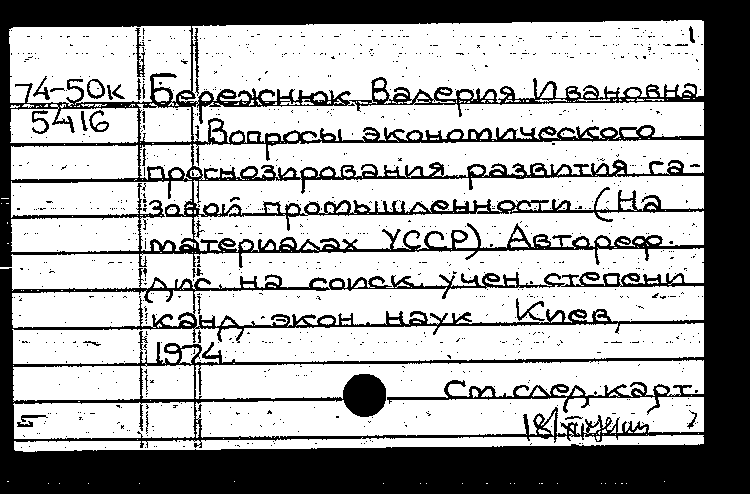 1
74-50к Бережнюк, Валерия Ивановна
5416
Вопросы экономического
прогнозирования развития га-
зовой промышленности. (На
материалах УССР). Автореф.
дис. на соиск. учен. степени
канд. экон. наук Киев,
1974.
См. след. карт.
18/XII